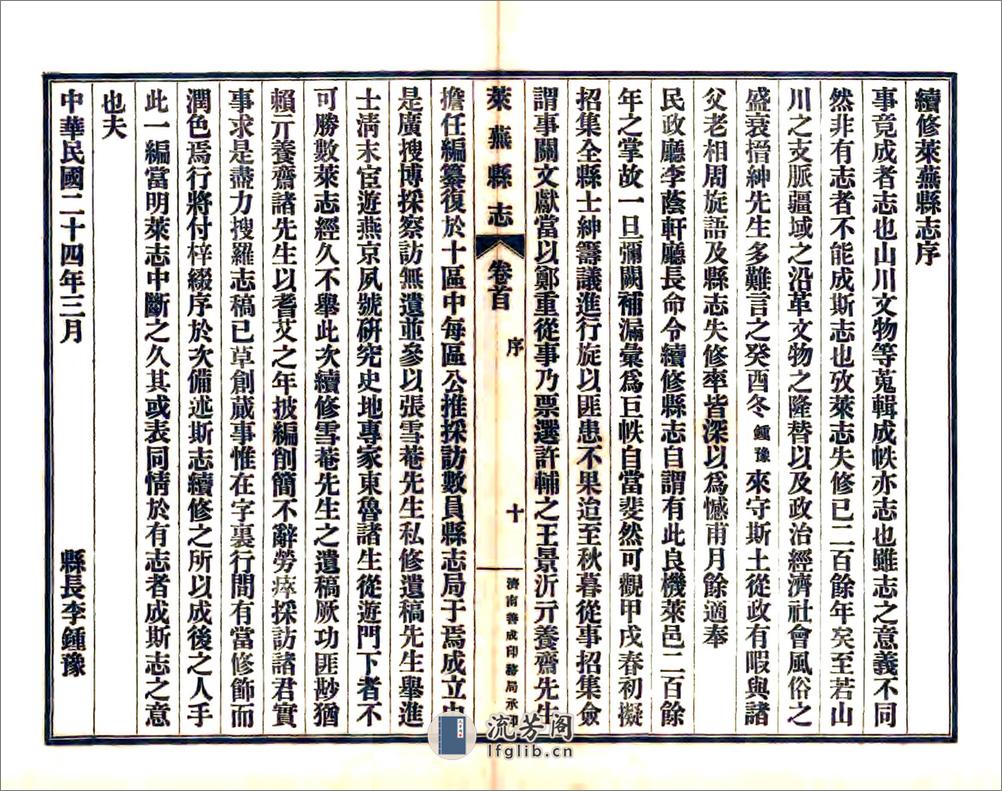 續修萊蕪縣志序
事竟成者志也山川文物等蒐輯成帙亦志也雖志之意義不同
然非有志者不能成斯志也攷萊志失修已二百餘年矣至若山
川之支脈疆域之沿革文物之隆替以及政治經濟社會風俗之
盛衰搢紳先生多難言之癸酉冬鍾豫來守斯土從政有暇與諸
父老相周旋語及縣志失修率皆深以爲憾甫月餘適奉
民政廳李蔭軒廳長命令續修縣志自謂有此良機萊邑二百餘
年之掌故一旦彌闕補漏彙爲巨帙自當斐然可觀甲戌春初擬
招集全縣士紳籌議進行旋以匪患不果迨至秋暮從事招集僉
謂事關文獻當以鄭重從事乃票選許輔之王景沂亓養齋先生
萊蕪縣志
卷首
序
十
濟南善成印務局承印
擔任編纂復於十區中每區公推採訪數員縣志局于焉成立由
是廣搜博採察訪無遺並參以張雪菴先生私修遺稿先生舉進
士淸末宦遊燕京夙號硏究史地專家東魯諸生從遊門下者不
可勝數萊志經久不舉此次續修雪菴先生之遺稿厥功匪尠猶
賴亓養齋諸先生以耆艾之年披編削簡不辭勞瘁採訪諸君實
事求是盡力搜羅志稿已草創蕆事惟在字裏行間有當修飾而
潤色焉行將付梓綴序於次備述斯志續修之所以成後之人手
此一編當明萊志中斷之久其或表同情於有志者成斯志之意
也夫
中華民國二十四年三月 縣長李鍾豫
流芳閣
lfglib.cn